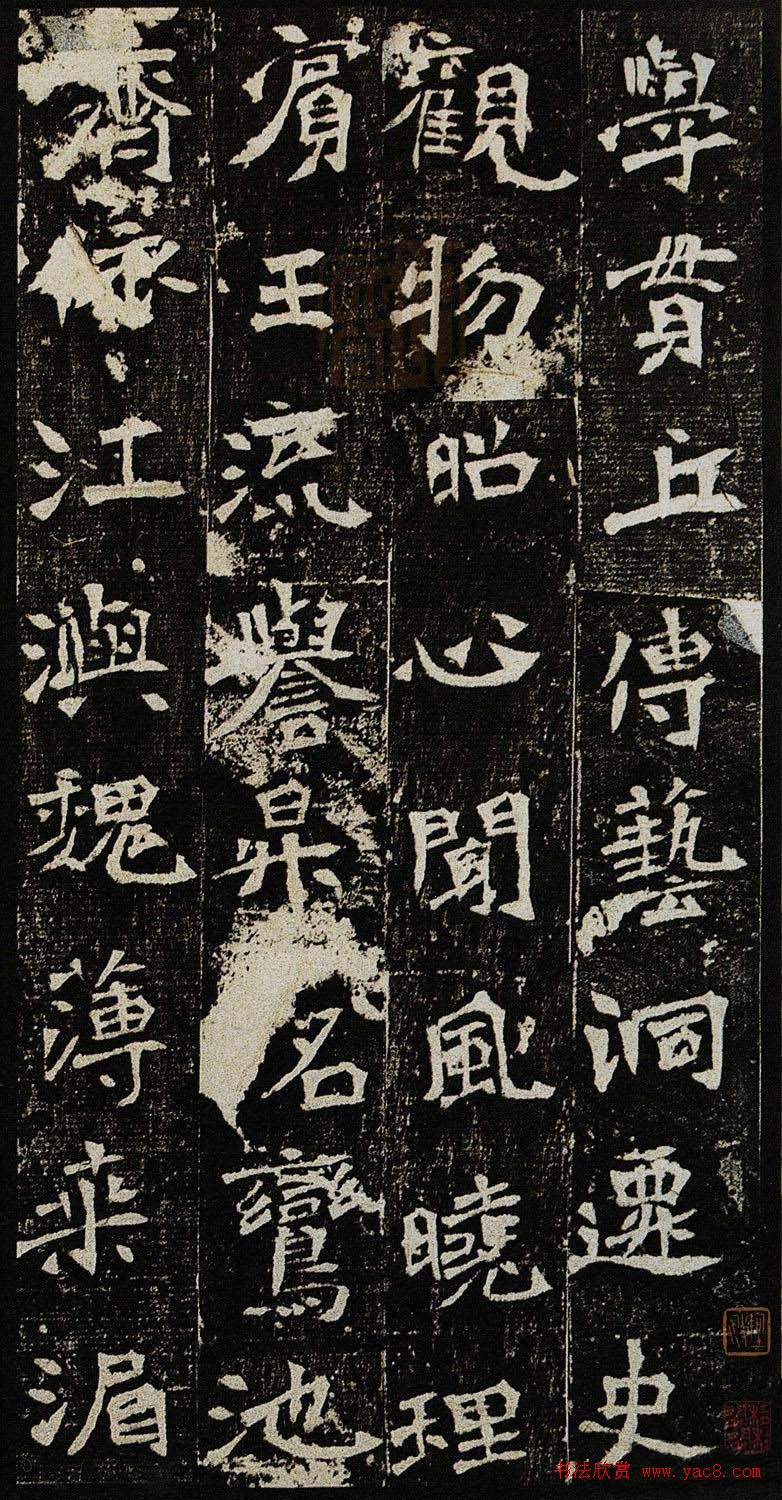 學貫丘傳藝洞遷史
觀物昭心聞風曉理
賓王流譽昇名鸞池
齊 江澳魏薄乘湄
书法欣赏 www.yac8.com